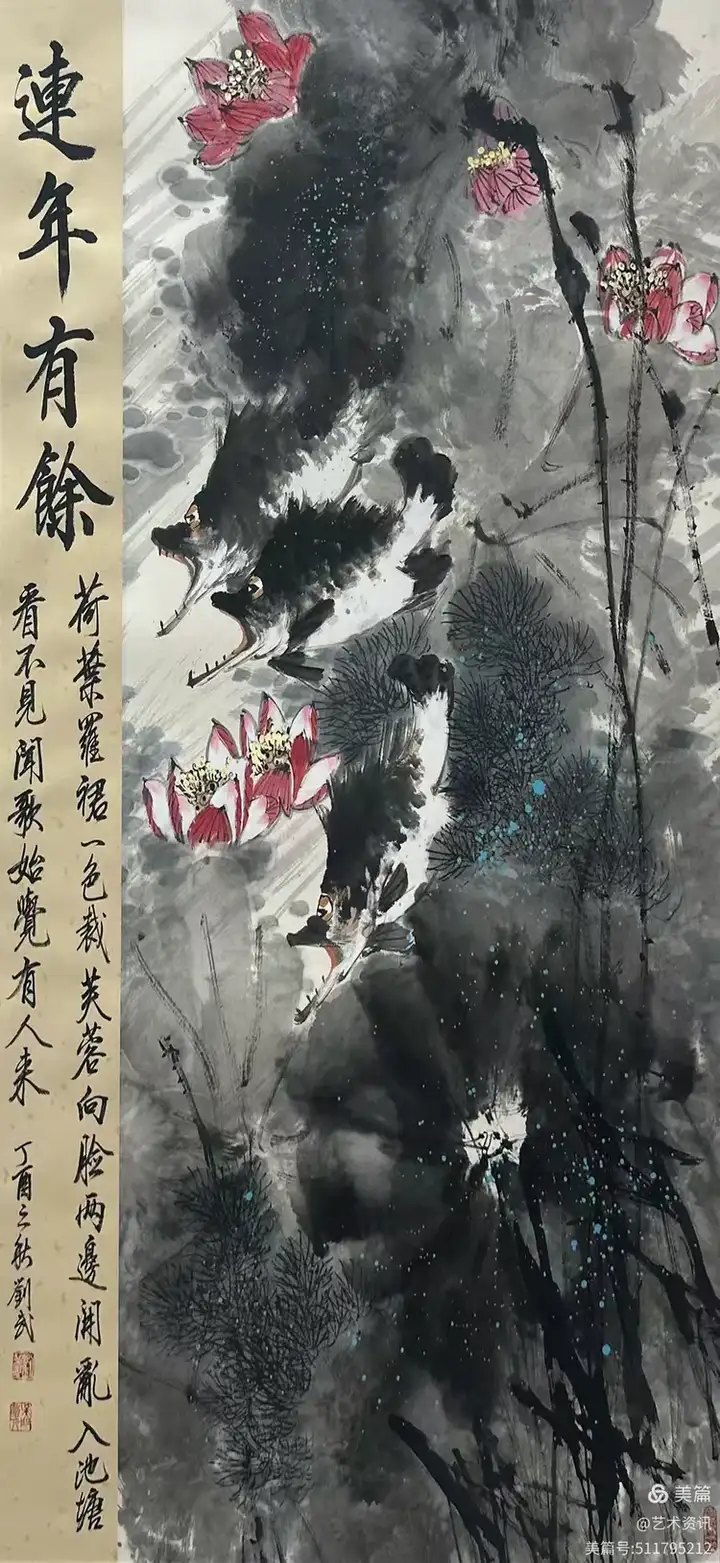 連年有餘
荷葉羅裙一色裁芙蓉向臉兩邊開亂入池塘
看不見聞歌始覺有人來
丁酉之秋劉武
美篇
@艺术资讯
美篇号:511795212